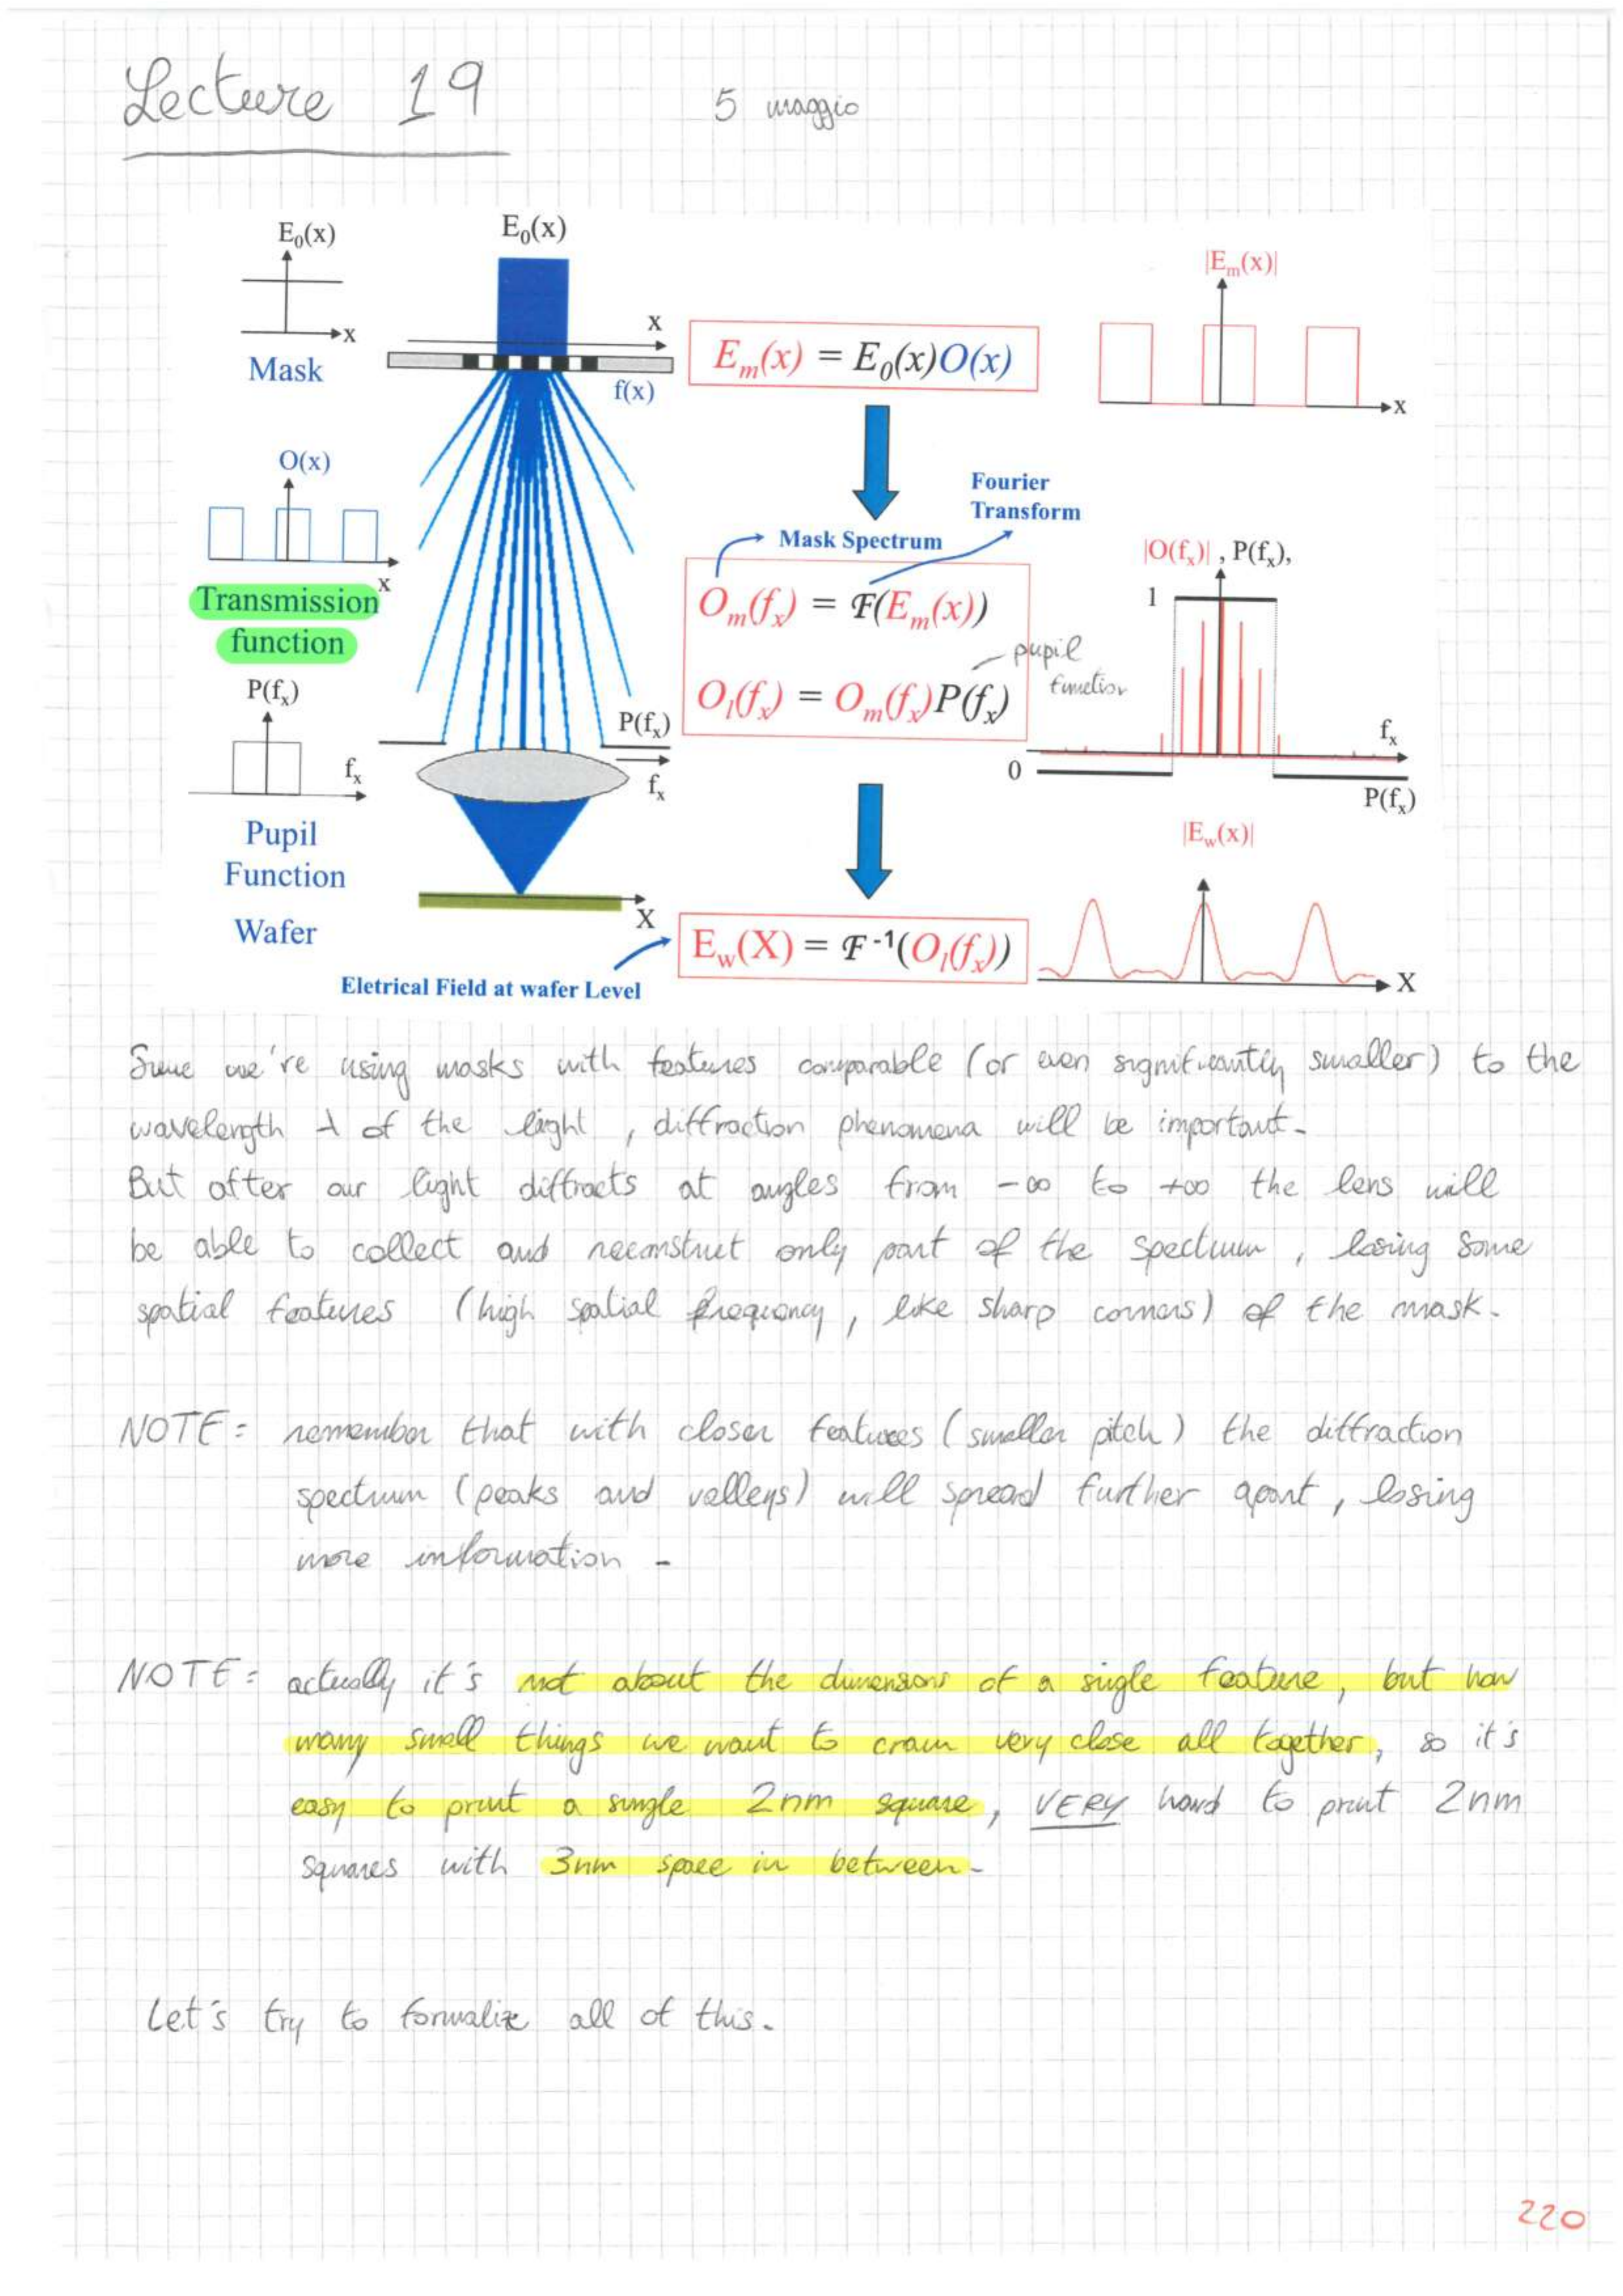 Lecture 19
5 maggio
E₀(x)
x
Mask
O(x)
x
Transmission
function
P(fₓ)
fₓ
Pupil
Function
Wafer
E₀(x)
x
f(x)
P(fₓ)
fₓ
X
Eletrical Field at wafer Level
Eₘ(x) = E₀(x)O(x)
Fourier
Transform
Mask Spectrum
Oₘ(fₓ) = F(Eₘ(x))
pupil
function
Oₗ(fₓ) = Oₘ(fₓ)P(fₓ)
E_w(X) = F⁻¹(Oₗ(fₓ))
|Eₘ(x)|
x
|O(fₓ)| , P(fₓ),
1
fₓ
0
P(fₓ)
|E_w(x)|
X
Since we're using masks with features comparable (or even significantly smaller) to the
wavelength λ of the light, diffraction phenomena will be important.
But after our light diffracts at angles from -∞ to +∞ the lens will
be able to collect and reconstruct only part of the spectrum, losing some
spatial features (high spatial frequency, like sharp corners) of the mask.
NOTE: remember that with closer features (smaller pitch) the diffraction
spectrum (peaks and valleys) will spread further apart, losing
more information.
NOTE: actually it's not about the dimensions of a single feature, but how
many small things we want to cram very close all together, so it's
easy to print a single 2nm square, VERY hard to print 2nm
squares with 3nm space in between.
Let's try to formalize all of this.
220